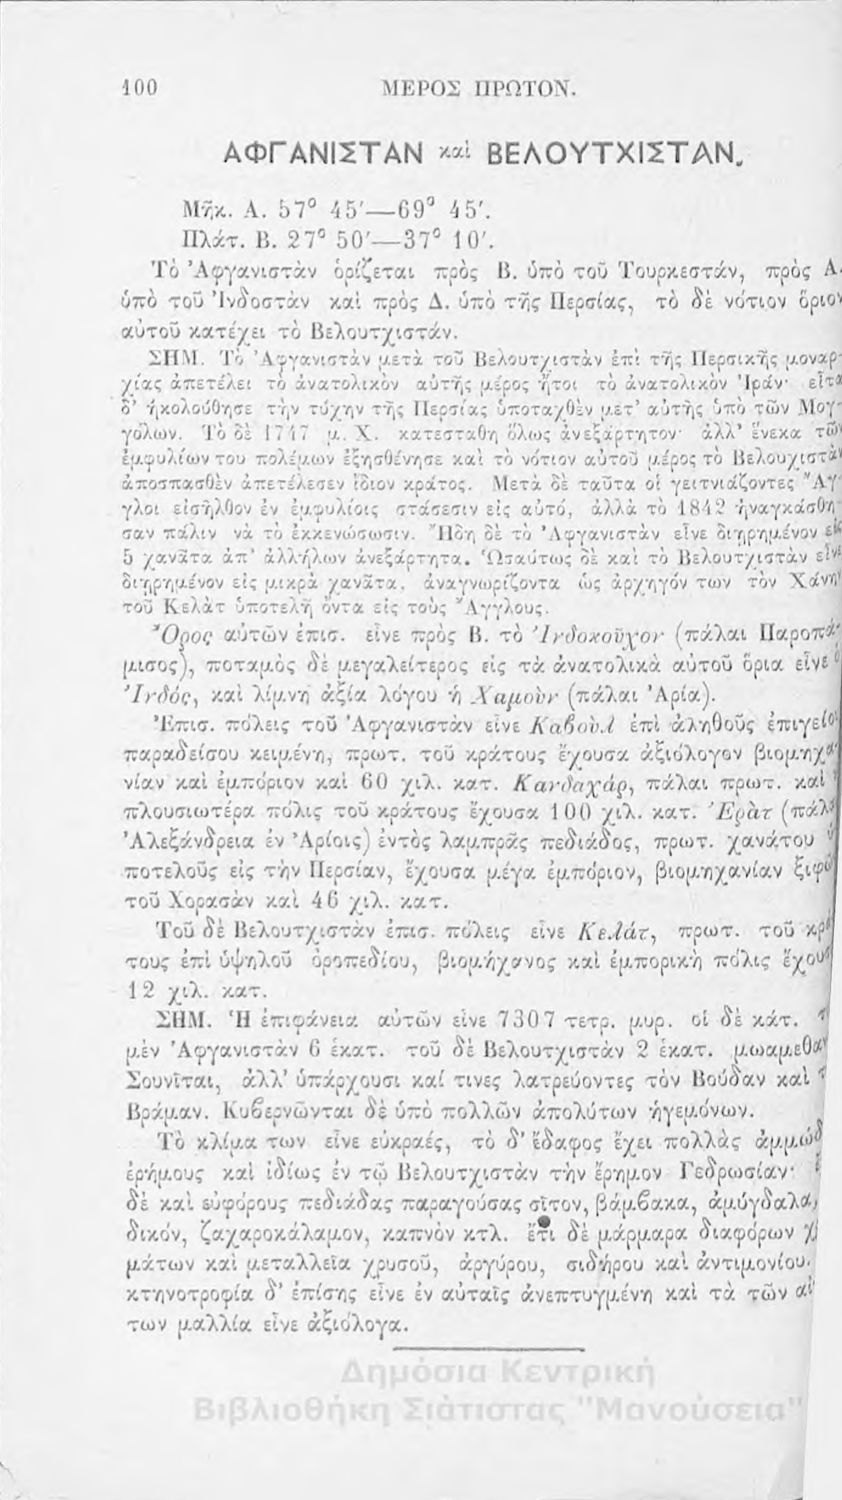 100 ΜΕΡΟΣ ΠΡΩΤΟΝ.
ΑΦΓΑΝΙΣΤΑΝ καὶ ΒΕΛΟΥΤΧΙΣΤΑΝ.
Μῆκ. Α. 57° 45′—69° 45′.
Πλάτ. Β. 27° 50′—37° 10′.
Τὸ Ἀφγανιστὰν ὁρίζεται πρὸς Β. ὑπὸ τοῦ Τουρκεστάν, πρὸς Α.
ὑπὸ τοῦ Ἰνδοστὰν καὶ πρὸς Δ. ὑπὸ τῆς Περσίας, τὸ δὲ νότιον ὅριον
αὐτοῦ κατέχει τὸ Βελουτχιστάν.
ΣΗΜ. Τὸ Ἀφγανιστὰν μετὰ τοῦ Βελουτχιστὰν ἐπὶ τῆς Περσικῆς μοναρ-
χίας ἀπετέλει τὸ ἀνατολικὸν αὐτῆς μέρος ἤτοι τὸ ἀνατολικὸν Ἰράν· εἶτα
δ’ ἠκολούθησε τὴν τύχην τῆς Περσίας ὑποταχθὲν μετ’ αὐτῆς ὑπὸ τῶν Μογ-
γόλων. Τὸ δὲ 1747 μ. Χ. κατεστάθη ὅλως ἀνεξάρτητον· ἀλλ’ ἕνεκα τῶν
ἐμφυλίων του πολέμων ἐξησθένησε καὶ τὸ νότιον αὐτοῦ μέρος τὸ Βελουχιστὰν
ἀποσπασθὲν ἀπετέλεσεν ἴδιον κράτος. Μετὰ δὲ ταῦτα οἱ γειτνιάζοντες Ἄγ-
γλοι εἰσῆλθον ἐν ἐμφυλίοις στάσεσιν εἰς αὐτό, ἀλλὰ τὸ 1842 ἠναγκάσθη-
σαν πάλιν νὰ τὸ ἐκκενώσωσιν. Ἤδη δὲ τὸ Ἀφγανιστὰν εἶνε διῃρημένον εἰς
5 χανᾶτα ἀπ’ ἀλλήλων ἀνεξάρτητα. Ὡσαύτως δὲ καὶ τὸ Βελουτχιστὰν εἶνε
διῃρημένον εἰς μικρὰ χανᾶτα, ἀναγνωρίζοντα ὡς ἀρχηγόν των τὸν Χάνην
τοῦ Κελὰτ ὑποτελῆ ὄντα εἰς τοὺς Ἄγγλους.
Ὄρος αὐτῶν ἐπισ. εἶνε πρὸς Β. τὸ Ἰνδοκοῦχον (πάλαι Παροπά-
μισος), ποταμὸς δὲ μεγαλείτερος εἰς τὰ ἀνατολικὰ αὐτοῦ ὅρια εἶνε ὁ
Ἰνδός, καὶ λίμνη ἀξία λόγου ἡ Χαμοὺν (πάλαι Ἀρία).
Ἐπισ. πόλεις τοῦ Ἀφγανιστὰν εἶνε Καβοὺλ ἐπὶ ἀληθοῦς ἐπιγείου
παραδείσου κειμένη, πρωτ. τοῦ κράτους ἔχουσα ἀξιόλογον βιομηχα-
νίαν καὶ ἐμπόριον καὶ 60 χιλ. κατ. Κανδαχάρ, πάλαι πρωτ. καὶ
πλουσιωτέρα πόλις τοῦ κράτους ἔχουσα 100 χιλ. κατ. Ἐρὰτ (πάλ.
Ἀλεξάνδρεια ἐν Ἀρίοις) ἐντὸς λαμπρᾶς πεδιάδος, πρωτ. χανάτου ὑ-
ποτελοῦς εἰς τὴν Περσίαν, ἔχουσα μέγα ἐμπόριον, βιομηχανίαν ξιφῶν
τοῦ Χορασὰν καὶ 46 χιλ. κατ.
Τοῦ δὲ Βελουτχιστὰν ἐπισ. πόλεις εἶνε Κελάτ, πρωτ. τοῦ κρά-
τους ἐπὶ ὑψηλοῦ ὀροπεδίου, βιομήχανος καὶ ἐμπορικὴ πόλις ἔχουσα
12 χιλ. κατ.
ΣΗΜ. Ἡ ἐπιφάνεια αὐτῶν εἶνε 7307 τετρ. μυρ. οἱ δὲ κάτ.
μὲν Ἀφγανιστὰν 6 ἑκατ. τοῦ δὲ Βελουτχιστὰν 2 ἑκατ. μωαμεθαν
Σουνῖται, ἀλλ’ ὑπάρχουσι καί τινες λατρεύοντες τὸν Βούδαν καὶ
Βράμαν. Κυβερνῶνται δὲ ὑπὸ πολλῶν ἀπολύτων ἡγεμόνων.
Τὸ κλίμα των εἶνε εὐκραές, τὸ δ’ ἔδαφος ἔχει πολλὰς ἀμμώδ
ἐρήμους καὶ ἰδίως ἐν τῷ Βελουτχιστὰν τὴν ἔρημον Γεδρωσίαν·
δὲ καὶ εὐφόρους πεδιάδας παραγούσας σῖτον, βάμβακα, ἀμύγδαλα,
δικόν, ζαχαροκάλαμον, καπνὸν κτλ. ἔτι δὲ μάρμαρα διαφόρων χρ
μάτων καὶ μεταλλεῖα χρυσοῦ, ἀργύρου, σιδήρου καὶ ἀντιμονίου.
κτηνοτροφία δ’ ἐπίσης εἶνε ἐν αὐταῖς ἀνεπτυγμένη καὶ τὰ τῶν αἰ
των μαλλία εἶνε ἀξιόλογα.
Δημόσια Κεντρική
Βιβλιοθήκη Σιάτιστας "Μανούσεια"